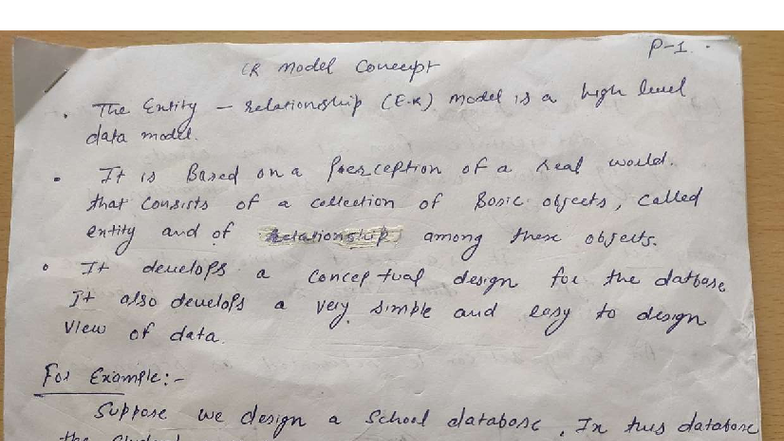 P-1.
ER Model Concept
• The Entity – relationship (E-R) Model is a high level
data model.
• It is Based on a Perception of a real world.
that consists of a collection of Basic objects, called
entity and of relationship among these objects.
• It develops a conceptual design for the datbase
It also develops a very simple and easy to design
View of data.
For Example:-
Suppose we design a School database. In this database
the Student